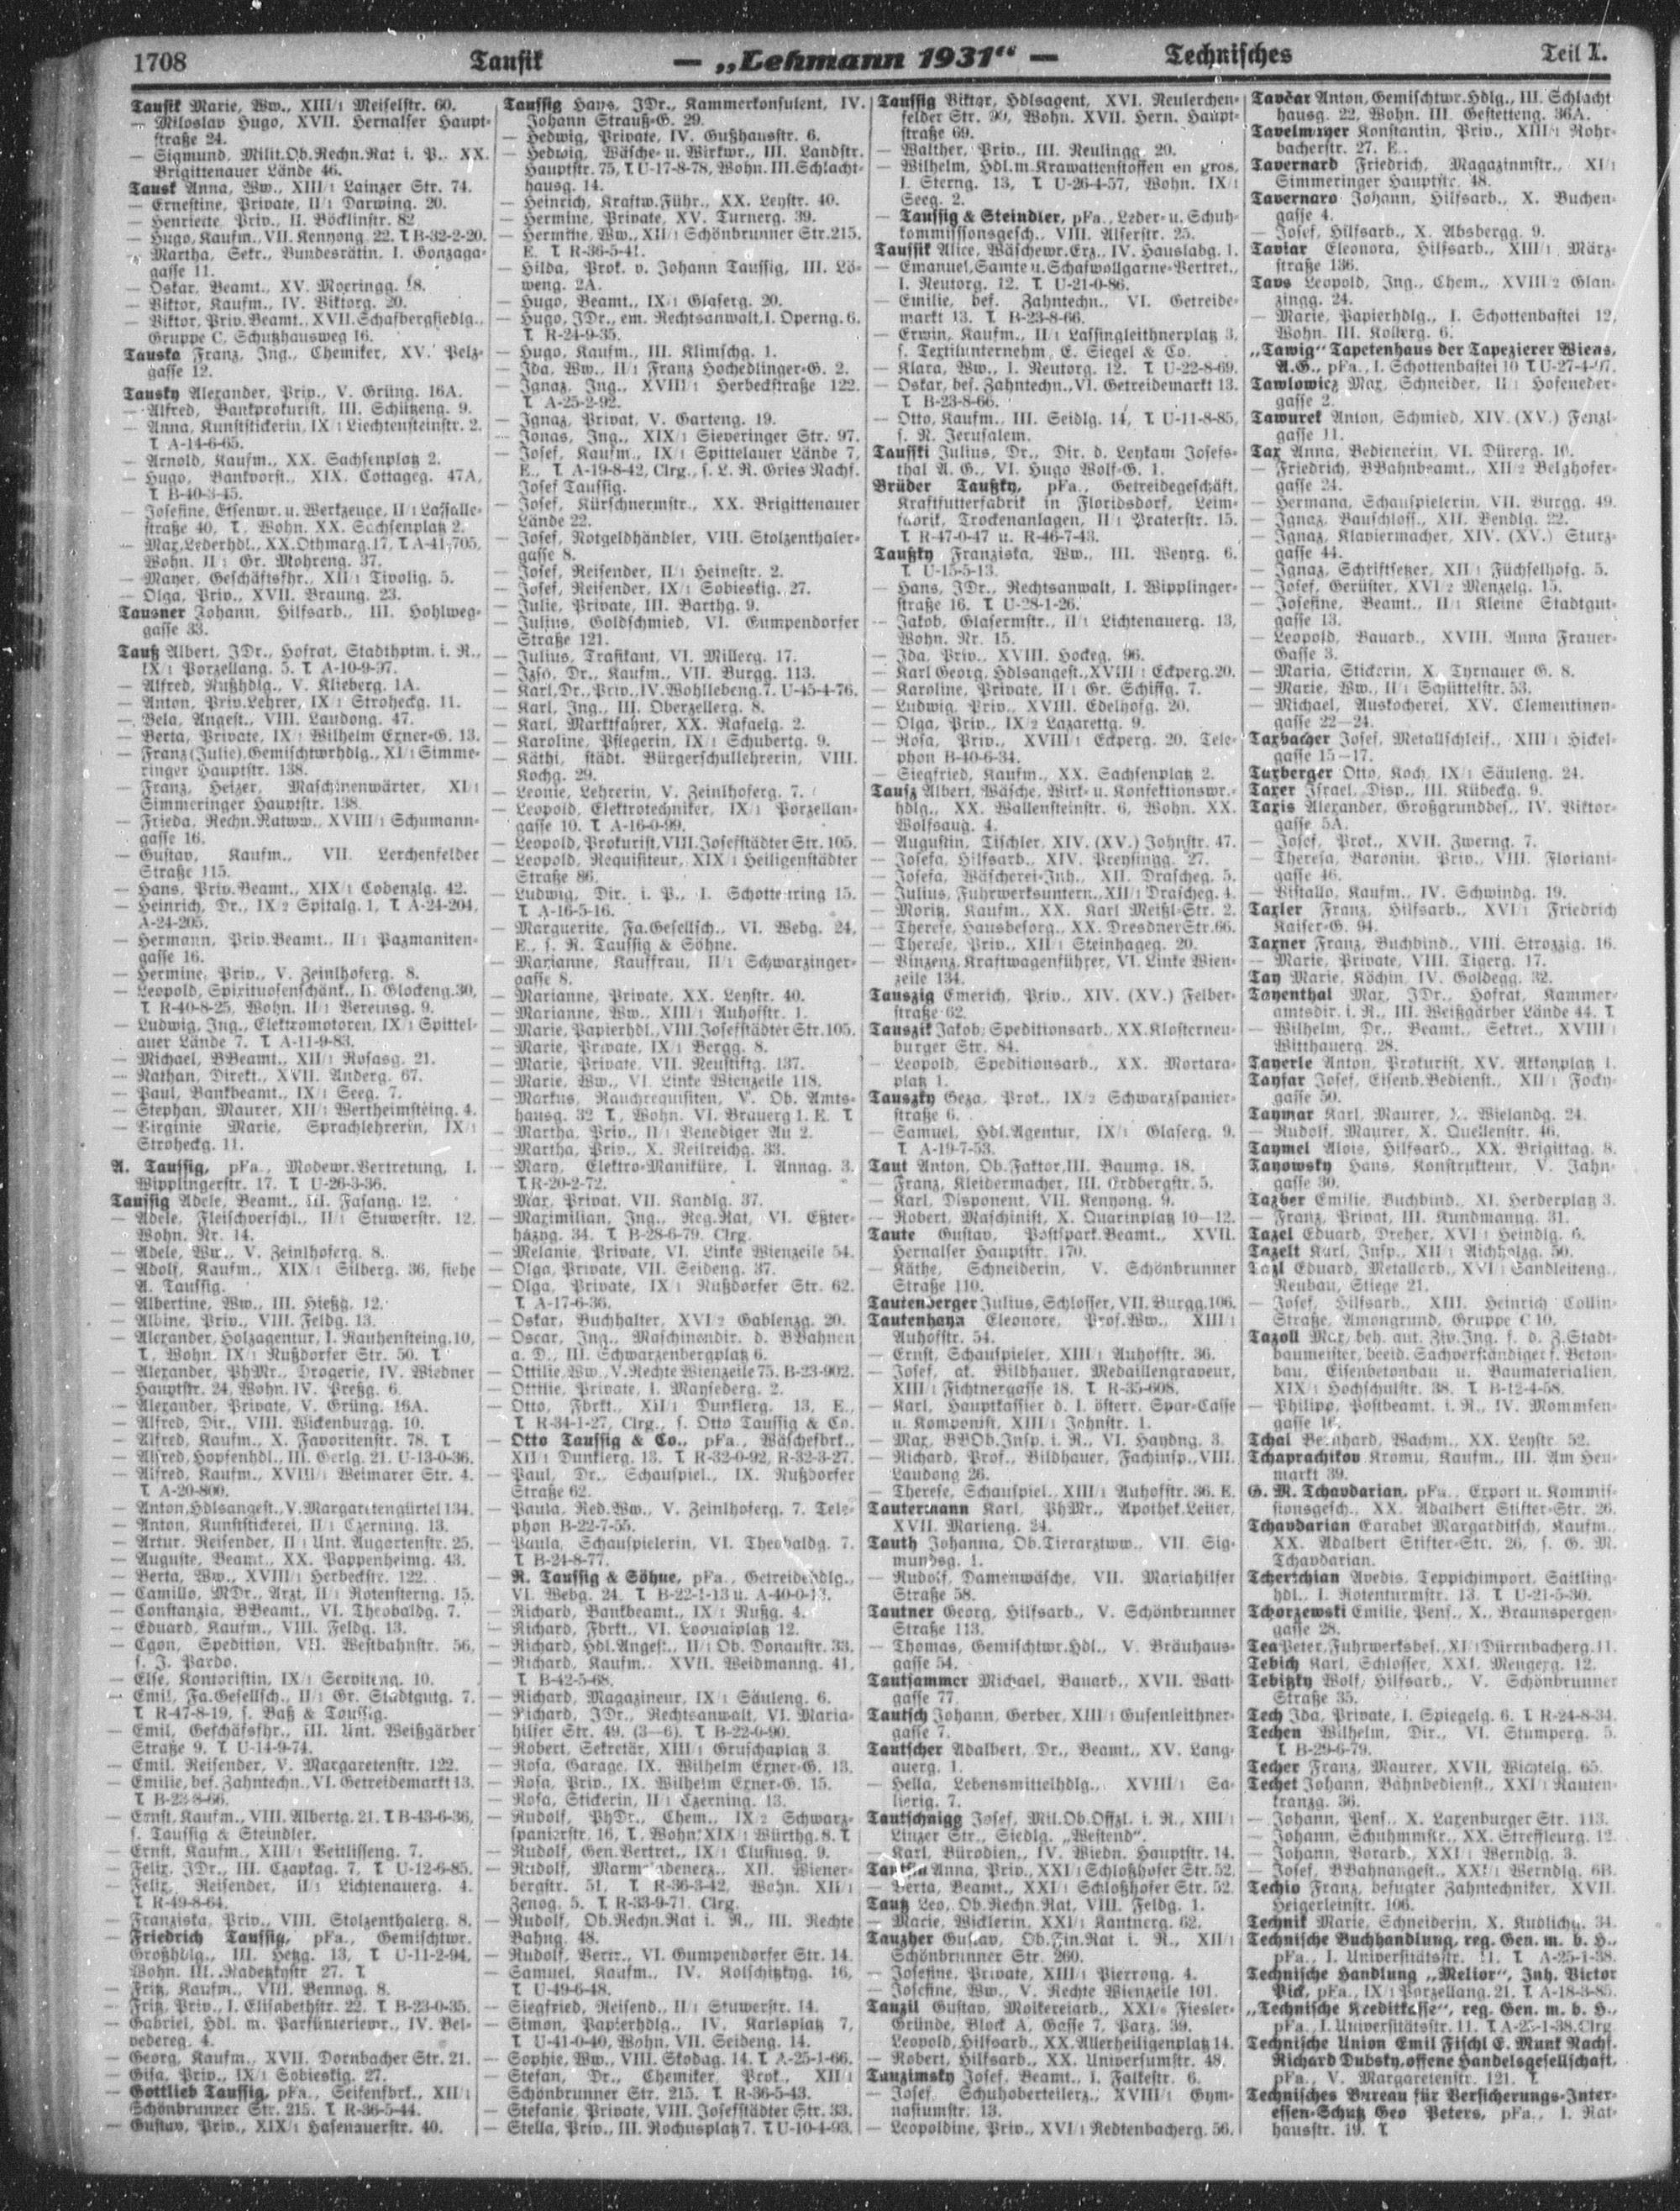 1708
Tausik
— „Lehmann 1931“ —
Technisches
Teil I.
Tausik Marie, Ww., XIII/1 Meiselstr. 60.
— Miloslav Hugo, XVII. Hernalser Haupt-
straße 24.
— Sigmund, Milit.Ob.Rechn.Rat i. P., XX.
Brigittenauer Lände 46.
Tausk Anna, Ww., XIII/1 Lainzer Str. 74.
— Ernestine, Private, II/1 Darwing. 20.
— Henriette Priv., II. Böcklinstr. 82
— Hugo, Kaufm., VII. Kenyong. 22. T. B-32-2-20.
— Martha, Sekr., Bundesrätin, I. Gonzaga-
gasse 11.
— Oskar, Beamt., XV. Moeringg. 18.
— Viktor, Kaufm., IV. Viktorg. 20.
— Viktor, Priv.Beamt., XVII. Schafbergsiedlg.,
Gruppe C, Schutzhausweg 16.
Tauska Franz, Ing., Chemiker, XV. Pelz-
gasse 12.
Tausky Alexander, Priv., V. Grüng. 16A.
— Alfred, Bankprokurist, III. Schützeng. 9.
— Anna, Kunststickerin, IX/1 Liechtensteinstr. 2.
T. A-14-6-65.
— Arnold, Kaufm., XX. Sachsenplatz 2.
— Hugo, Bankvorst., XIX. Cottageg. 47A,
T. B-40-3-45.
— Josefine, Eisenwr. u. Werkzeuge, II/1 Lassalle-
straße 40, T. Wohn. XX. Sachsenplatz 2.
— Max, Lederhdl., XX. Othmarg. 17, T. A-41-705,
Wohn. II/1 Gr. Mohreng. 37.
— Mayer, Geschäftsfhr., XII/1 Tivolig. 5.
— Olga, Priv., XVII. Braung. 23.
Tausner Johann, Hilfsarb., III. Hohlweg-
gasse 33.
Tauß Albert, JDr., Hofrat, Stadthptm. i. R.,
IX/1 Porzellang. 5. T. A-10-9-97.
— Alfred, Nußhdlg., V. Klieberg. 1A.
— Anton, Priv.Lehrer, IX/1 Stroheckg. 11.
— Bela, Angest., VIII. Laudong. 47.
— Berta, Private, IX/1 Wilhelm Exner-G. 13.
— Franz (Julie), Gemischtwrhdlg., XI/1 Simme-
ringer Hauptstr. 138.
— Franz, Heizer, Maschinenwärter, XI/1
Simmeringer Hauptstr. 138.
— Frieda, Rechn.Ratww., XVIII/1 Schumann-
gasse 16.
— Gustav, Kaufm., VII. Lerchenfelder
Straße 115.
— Hans, Priv.Beamt., XIX/1 Cobenzlg. 42.
— Heinrich, Dr., IX/2 Spitalg. 1, T. A-24-204,
A-24-205.
— Hermann, Priv.Beamt., II/1 Pazmaniten-
gasse 16.
— Hermine, Priv., V. Zeinlhoferg. 8.
— Leopold, Spirituosenschänk., II. Glockeng. 30,
T. R-40-8-25, Wohn. II/1 Vereinsg. 9.
— Ludwig, Ing., Elektromotoren, IX/1 Spittel-
auer Lände 7. T. A-11-9-83.
— Michael, BBeamt., XII/1 Rosasg. 21.
— Nathan, Direkt., XVII. Anderg. 67.
— Paul, Bankbeamt., IX/1 Seeg. 7.
— Stephan, Maurer, XII/1 Wertheimsteing. 4.
— Virginie Marie, Sprachlehrerin, IX/1
Stroheckg. 11.
A. Taussig, pFa., Modewr.Vertretung, I.
Wipplingerstr. 17. T. U-26-3-36.
Taussig Adele, Beamt., III. Fasang. 12.
— Adele, Fleischverschl., II/1 Stuwerstr. 12,
Wohn. Nr. 14.
— Adele, Ww., V. Zeinlhoferg. 8.
— Adolf, Kaufm., XIX/1 Silberg. 36, siehe
A. Taussig.
— Albertine, Ww., III. Hießg. 12.
— Albine, Priv., VIII. Feldg. 13.
— Alexander, Holzagentur, I. Rauhensteing. 10,
T., Wohn. IX/1 Nußdorfer Str. 50. T.
— Alexander, PhMr., Drogerie, IV. Wiedner
Hauptstr. 24, Wohn. IV. Preßg. 6.
— Alexander, Private, V. Grüng. 16A.
— Alfred, Dir., VIII. Wickenburgg. 10.
— Alfred, Kaufm., X. Favoritenstr. 78. T.
— Alfred, Hopfenhdl., III. Gerlg. 21. U-13-0-36.
— Alfred, Kaufm., XVIII/1 Weimarer Str. 4.
T. A-20-800.
— Anton, Hdlsangest., V. Margaretengürtel 134.
— Anton, Kunststickerei, II/1 Czerning. 13.
— Artur, Reisender, II/1 Unt. Augartenstr. 25.
— Auguste, Beamt., XX. Pappenheimg. 43.
— Berta, Ww., XVIII/1 Herbeckstr. 122.
— Camillo, MDr., Arzt, II/1 Rotensterng. 15.
— Constanzia, BBeamt., VI. Theobaldg. 7.
— Eduard, Kaufm., VIII. Feldg. 13.
— Egon, Spedition, VII. Westbahnstr. 56,
s. J. Pardo.
— Else, Kontoristin, IX/1 Serviteng. 10.
— Emil, Fa.Gesellsch., II/1 Gr. Stadtgutg. 7.
T. R-47-8-19, s. Baß & Toussig.
— Emil, Geschäfsfhr., III. Unt. Weißgärber
Straße 9. T. U-14-9-74.
— Emil, Reisender, V. Margaretenstr. 122.
— Emilie, bef. Zahntechn., VI. Getreidemarkt 13.
T. B-23-8-66.
— Ernst, Kaufm., VIII. Albertg. 21. T. B-43-6-36,
s. Taussig & Steindler.
— Ernst, Kaufm., XIII/1 Veitlisseng. 7.
— Felix, JDr., III. Czapkag. 7, T. U-12-6-85.
— Felix, Reisender, II/1 Lichtenauerg. 4.
T. R-49-8-64.
— Franziska, Priv., VIII. Stolzenthalerg. 8.
— Friedrich Taussig, pFa., Gemischtwr.
Großhdlg., III. Hetzg. 13, T. U-11-2-94,
Wohn. III. Radetzkystr. 27. T.
— Fritz, Kaufm., VIII. Bennog. 8.
— Fritz, Priv., I. Elisabethstr. 22. T. B-23-0-35.
— Gabriel, Hdl. m. Parfümeriewr., IV. Bel-
vederegg. 4.
— Georg, Kaufm., XVII. Dornbacher Str. 21.
— Gisa, Priv., IX/1 Sobieskig. 27.
— Gottlieb Taussig, pFa., Seifenfbrk., XII/1
Schönbrunner Str. 215. T. R-36-5-44.
— Gustav, Priv., XIX/1 Hasenauerstr. 40.
Taussig Hans, JDr., Kammerkonsulent, IV.
Johann Strauß-G. 29.
— Hedwig, Private, IV. Gußhausstr. 6.
— Hedwig, Wäsche- u. Wirkwr., III. Landstr.
Hauptstr. 75, T. U-17-8-78, Wohn. III. Schlacht-
hausg. 14.
— Heinrich, Kraftw.Führ., XX. Leystr. 40.
— Hermine, Private, XV. Turnerg. 39.
— Hermine, Ww., XII/1 Schönbrunner Str. 215,
E. T. R-36-5-41.
— Hilda, Prok. v. Johann Taussig, III. Lö-
weng. 2A.
— Hugo, Beamt., IX/1 Glaserg. 20.
— Hugo, JDr., em. Rechtsanwalt, I. Operng. 6.
T. R-24-9-35.
— Hugo, Kaufm., III. Klimschg. 1.
— Ida, Ww., II/1 Franz Hochedlinger-G. 2.
— Ignaz, Ing., XVIII/1 Herbeckstraße 122.
T. A-25-2-92.
— Ignaz, Privat, V. Garteng. 19.
— Jonas, Ing., XIX/1 Sieveringer Str. 97.
— Josef, Kaufm., IX/1 Spittelauer Lände 7,
E., T. A-19-8-42, Clrg., s. L. R. Gries Nachf.
Josef Taussig.
— Josef, Kürschnermstr., XX. Brigittenauer
Lände 22.
— Josef, Notgeldhändler, VIII. Stolzenthaler-
gasse 8.
— Josef, Reisender, II/1 Heinestr. 2.
— Josef, Reisender, IX/1 Sobieskig. 27.
— Julie, Private, III. Barthg. 9.
— Julius, Goldschmied, VI. Gumpendorfer
Straße 121.
— Julius, Trafikant, VI. Millerg. 17.
— Izso, Dr., Kaufm., VII. Burgg. 113.
— Karl, Dr., Priv., IV. Wohllebeng. 7. U-45-4-76.
— Karl, Ing., III. Oberzellerg. 8.
— Karl, Marktfahrer, XX. Rafaelg. 2.
— Karoline, Pflegerin, IX/1 Schubertg. 9.
— Käthi, städt. Bürgerschullehrerin, VIII.
Kochg. 29.
— Leonie, Lehrerin, V. Zeinlhoferg. 7.
— Leopold, Elektrotechniker, IX/1 Porzellan-
gasse 10. T. A-16-0-99.
— Leopold, Prokurist, VIII. Josefstädter Str. 105.
— Leopold, Requisiteur, XIX/1 Heiligenstädter
Straße 86.
— Ludwig, Dir. i. P., I. Schottenring 15.
T. A-16-5-16.
— Marguerite, Fa.Gesellsch., VI. Webg. 24,
E., s. R. Taussig & Söhne.
— Marianne, Kauffrau, II/1 Schwarzinger-
gasse 8.
— Marianne, Private, XX. Leystr. 40.
— Marianne, Ww., XIII/1 Auhofstr. 1.
— Marie, Papierhdl., VIII. Josefstädter Str. 105.
— Marie, Private, IX/1 Bergg. 8.
— Marie, Private, VII. Neustiftg. 137.
— Marie, Ww., VI. Linke Wienzeile 118.
— Markus, Rauchrequisiten, V. Ob. Amts-
hausg. 32 T., Wohn. VI. Brauerg 1. E. T.
— Martha, Priv., II/1 Venediger Au 2.
— Martha, Priv., X. Neilreichg. 33.
— Mary, Elektro-Maniküre, I. Annag. 3.
T. R-20-2-72.
— Max, Privat, VII. Kandlg. 37.
— Maximilian, Ing., Reg.Rat, VI. Eßter-
házyg. 34. T. B-28-6-79. Clrg.
— Melanie, Private, VI. Linke Wienzeile 54.
— Olga, Private, VII. Seideng. 37.
— Olga, Private, IX/1 Nußdorfer Str. 62.
T. A-17-6-36.
— Oskar, Buchhalter, XVI/2 Gablenzg. 20.
— Oscar, Ing., Maschinendir. d. BBahnen
a. D., III. Schwarzenbergplatz 6.
— Ottilie, Ww., V. Rechte Wienzeile 75. B-23-902.
— Ottilie, Private, I. Maysederg. 2.
— Otto, Fbrkt., XII/1 Dunklerg. 13, E.,
T. R-34-1-27, Clrg., s. Otto Taussig & Co.
— Otto Taussig & Co., pFa., Wäschefbrk.,
XII/1 Dunklerg. 13. T. R-32-0-92, R-32-3-27.
— Paul, Dr., Schauspiel., IX. Nußdorfer
Straße 62.
— Paula, Red.Ww., V. Zeinlhoferg. 7. Tele-
phon B-22-7-55.
— Paula, Schauspielerin, VI. Theobaldg. 7.
T. B-24-8-77.
— R. Taussig & Söhne, pFa., Getreidehdlg.,
VI. Webg. 24. T. B-22-1-13 u. A-40-0-13.
— Richard, Bankbeamt., IX/1 Nußg. 4.
— Richard, Fbrkt., VI. Loquaiplatz 12.
— Richard, Hdl.Angest., II/1 Ob. Donaustr. 33.
— Richard, Kaufm., XVII. Weidmanng. 41,
T. B-42-5-68.
— Richard, Magazineur, IX/1 Säuleng. 6.
— Richard, JDr., Rechtsanwalt, VI. Maria-
hilfer Str. 49. (3—6). T. B-22-0-90.
— Robert, Sekretär, XIII/1 Gruschaplatz 3.
— Rosa, Garage, IX. Wilhelm Exner-G. 13.
— Rosa, Priv., IX. Wilhelm Exner-G. 15.
— Rosa, Stickerin, II/1 Czerning. 13.
— Rudolf, PhDr., Chem., IX/2 Schwarz-
spanierstr. 16, T., Wohn. XIX/1 Würthg. 8. T.
— Rudolf, Gen.Vertret., IX/1 Clusiusg. 9.
— Rudolf, Marmeladenerz., XII. Wiener-
bergstr. 51, T. R-36-3-42, Wohn. XII/1
Zenog. 5. T. R-33-9-71. Clrg.
— Rudolf, Ob.Rechn.Rat i. R., III. Rechte
Bahng. 48.
— Rudolf, Vertr., VI. Gumpendorfer Str. 14.
— Samuel, Kaufm., IV. Kolschitzkyg. 16,
T. U-49-6-48.
— Siegfried, Reisend., II/1 Stuwerstr. 14.
— Simon, Papierhdlg., IV. Karlsplatz 7,
T. U-41-0-40, Wohn. VII. Seideng. 14.
— Sophie, Ww., VIII. Skodag. 14. T. A-25-1-66.
— Stefan, Dr., Chemiker, Prok., XII/1
Schönbrunner Str. 215. T. R-36-5-43.
— Stefanie, Private, VIII. Josefstädter Str. 33.
— Stella, Priv., III. Rochusplatz 7. T. U-10-4-93.
Taussig Viktor, Hdlsagent, XVI. Neulerchen-
felder Str. Wohn. XVII. Hern. Haupt-
straße 69.
— Walther, Priv., III. Neulingg 29.
— Wilhelm, Hdl. m. Krawattenstoffen en gros,
I. Sterng. 13, T. U-26-4-57, Wohn. IX/1
Seeg. 2.
— Taussig & Steindler, pFa., Leder- u. Schuh-
kommissionsgesch., VIII. Alserstr. 25.
Taussik Alice, Wäschewr.Erz., IV. Hauslabg. 1.
— Emanuel, Samte u. Schafwollgarne-Vertret.,
I. Neutorg. 12. T. U-21-0-86.
— Emilie, bef. Zahntechn., VI. Getreide-
markt 13. T. B-23-8-66.
— Erwin, Kaufm., II/1 Lassingleithnerplatz 3,
s. Textilunternehm. E. Siegel & Co.
— Klara, Ww., I. Neutorg. 12. T. U-22-8-69.
— Oskar, bef. Zahntechn., VI. Getreidemarkt 13.
T. B-23-8-66.
— Otto, Kaufm., III. Seidlg. 14, T. U-11-8-85,
s. N. Jerusalem.
Tausski Julius, Dr., Dir. d. Leykam Josefs-
thal A. G., VI. Hugo Wolf-G. 1.
Brüder Taußky, pFa., Getreidegeschäft,
Kraftfutterfabrik in Floridsdorf, Leim-
fabrik, Trockenanlagen, II/1 Praterstr. 15.
T. R-47-0-47 u. R-46-7-43.
Taußky Franziska, Ww., III. Weyrg. 6.
T. U-15-5-13.
— Hans, JDr., Rechtsanwalt, I. Wipplinger-
straße 16. T. U-28-1-26.
— Jakob, Glasermstr., II/1 Lichtenauerg. 13,
Wohn. Nr. 15.
— Ida, Priv., XVIII. Hockeg. 96.
— Karl Georg, Hdlsangest., XVIII/1 Eckperg. 20.
— Karoline, Private, II/1 Gr. Schiffg. 7.
— Ludwig, Priv., XVIII. Edelhofg. 20.
— Olga, Priv., IX/2 Lazarettg. 9.
— Rosa, Priv., XVIII/1 Eckperg. 20. Tele-
phon B-40-6-34.
— Siegfried, Kaufm., XX. Sachsenplatz 2.
Tausz Albert, Wäsche, Wirk- u. Konfektionswr.-
hdlg., XX. Wallensteinstr. 6, Wohn. XX.
Wolfsaug. 4.
— Augustin, Tischler, XIV. (XV.) Johnstr. 47.
— Josefa, Hilfsarb., XIV. Preysingg. 27.
— Josefa, Wäscherei-Inh., XII. Drascheg. 5.
— Julius, Fuhrwerksuntern., XII/1 Drascheg. 4.
— Moritz, Kaufm., XX. Karl Meißl-Str. 2.
— Therese, Hausbesorg., XX. Dresdner Str. 66.
— Therese, Priv., XII/1 Steinhageg. 20.
— Vinzenz, Kraftwagenführer, VI. Linke Wien-
zeile 134.
Tauszig Emerich, Priv., XIV. (XV.) Felber-
straße 62.
Tauszik Jakob, Speditionsarb., XX. Klosterneu-
burger Str. 84.
— Leopold, Speditionsarb., XX. Mortara-
platz 1.
Tauszky Geza, Prok., IX/2 Schwarzspanier-
straße 6.
— Samuel, Hdl.Agentur, IX/1 Glaserg. 9.
T. A-19-7-53.
Taut Anton, Ob.Faktor, III. Baumg. 18.
— Franz, Kleidermacher, III. Erdbergstr. 5.
— Karl, Disponent, VII. Kenyong. 9.
— Robert, Maschinist, X. Quarinplatz 10—12.
Taute Gustav, Postspark.Beamt., XVII.
Hernalser Hauptstr. 170.
— Käthe, Schneiderin, V. Schönbrunner
Straße 110.
Tautenberger Julius, Schlosser, VII. Burgg. 106.
Tautenhayn Eleonore, Prof.Ww., XIII/1
Auhofstr. 54.
— Ernst, Schauspieler, XIII/1 Auhofstr. 36.
— Josef, ak. Bildhauer, Medaillengraveur,
XIII/1 Fichtnergasse 18. T. R-35-608.
— Karl, Hauptkassier d. I. österr. Spar-Casse
u. Komponist, XIII/1 Johnstr. 1.
— Max, BBOb.Insp. i. R., VI. Haydng. 3.
— Richard, Prof., Bildhauer, Fachinsp., VIII.
Laudong 26.
— Therese, Schauspiel., XIII/1 Auhofstr. 36. E.
Tautermann Karl, PhMr., Apothek.Leiter,
XVII. Marieng. 24.
Tauth Johanna, Ob.Tierarztww., VII. Sig-
mundsg. 1.
— Rudolf, Damenwäsche, VII. Mariahilfer
Straße 58.
Tautner Georg, Hilfsarb., V. Schönbrunner
Straße 113.
— Thomas, Gemischtwr.Hdl., V. Bräuhaus-
gasse 54.
Tautsammer Michael, Bauarb., XVII. Watt-
gasse 77.
Tautsch Johann, Gerber, XIII/1 Gusenleithner-
gasse 7.
Tautscher Adalbert, Dr., Beamt., XV. Lang-
auerg. 1.
— Hella, Lebensmittelhdlg., XVIII/1 Sa-
lierig. 7.
Tautschnigg Josef, Mil.Ob.Offzl. i. R., XIII/1
Linzer Str., Siedlg. „Westend“.
— Karl, Bürodien., IV. Wiedn. Hauptstr. 14.
Anna, Priv., XXI/1 Schloßhofer Str. 52.
— Berta, Beamt., XXI/1 Schloßhofer Str. 52.
Tautz Leo, Ob.Rechn.Rat, VIII. Feldg. 1.
— Marie, Wicklerin, XXI/1 Kantnerg. 62.
Tauzher Gustav, Ob.Fin.Rat i. R., XII/1
Schönbrunner Str. 260.
— Josefine, Private, XIII/1 Pierrong. 4.
— Josefine, Ww., V. Rechte Wienzeile 101.
Tauzil Gustav, Molkereiarb., XXI/6 Fiesler-
Gründe, Block A, Gasse 7, Parz. 39.
— Leopold, Hilfsarb., XX. Allerheiligenplatz 14.
— Robert, Hilfsarb., XX. Universumstr. 48.
Tauzimsky Josef, Beamt., I. Falkestr. 6.
— Josef, Schuhoberteilerz., XVIII/1 Gym-
nasiumstr. 13.
— Leopoldine, Priv., XVI/1 Redtenbacherg. 56.
Tavčar Anton, Gemischtwr.Hdlg., III. Schlacht-
hausg. 22, Wohn. III. Gestetteng. 36A.
Tavelmayer Konstantin, Priv., XIII/1 Rohr-
bacherstr. 27. E.
Tavernard Friedrich, Magazinmstr., XI/1
Simmeringer Hauptstr. 48.
Tavernaro Johann, Hilfsarb., X. Buchen-
gasse 4.
— Josef, Hilfsarb., X. Absbergg. 9.
Taviar Eleonora, Hilfsarb., XIII/1 März-
straße 136.
Tavs Leopold, Ing., Chem., XVIII/2 Glan-
zingg. 24.
— Marie, Papierhdlg., I. Schottenbastei 12,
Wohn. III. Kolberg. 6.
„Tawig“ Tapetenhaus der Tapezierer Wiens,
A.G., pFa., I. Schottenbastei 10 T. U-27-4-97.
Tawlowicz Max, Schneider, II/1 Hofeneder-
gasse 2.
Tawurek Anton, Schmied, XIV. (XV.) Fenzl-
gasse 11.
Tax Anna, Bedienerin, VI. Dürerg. 10.
— Friedrich, BBahnbeamt., XII/2 Belghofer-
gasse 24.
— Hermana, Schauspielerin, VII. Burgg. 49.
— Ignaz, Bauschloss., XII. Bendlg. 22.
— Ignaz, Klaviermacher, XIV. (XV.) Sturz-
gasse 44.
— Ignaz, Schriftsetzer, XII/1 Füchselhofg. 5.
— Josef, Gerüster, XVI/2 Menzelg. 15.
— Josefine, Beamt., II/1 Kleine Stadtgut-
gasse 13.
— Leopold, Bauarb., XVIII. Anna Frauer-
Gasse 3.
— Maria, Stickerin, X. Tyrnauer G. 8.
— Marie, Ww., II/1 Schüttelstr. 53.
— Michael, Auskocherei, XV. Clementinen-
gasse 22—24.
Taxbacher Josef, Metallschleif., XIII/1 Hickel-
gasse 15—17.
Taxberger Otto, Koch, IX/1 Säuleng. 24.
Taxer Israel, Disp., III. Kübeckg. 9.
Taxis Alexander, Großgrundbes., IV. Viktor-
gasse 5A.
— Josef, Prok., XVII. Zwerng. 7.
— Theresa, Baronin, Priv., VIII. Floriani-
gasse 46.
— Vistallo, Kaufm., IV. Schwindg. 19.
Taxler Franz, Hilfsarb., XVI/1 Friedrich
Kaiser-G. 94.
Taxner Franz, Buchbind., VIII. Strozzig. 16.
— Marie, Private, VIII. Tigerg. 17.
Tay Marie, Köchin, IV. Goldegg. 32.
Tayenthal Max, JDr., Hofrat, Kammer-
amtsdir. i. R., III. Weißgärber Lände 44. T.
— Wilhelm, Dr., Beamt., Sekret., XVIII/1
Witthauerg. 28.
Tayerle Anton, Prokurist, XV. Akkonplatz 1.
Taysar Josef, Eisenb.Bedienst., XII/1 Focky-
gasse 50.
Taymar Karl, Maurer, X. Wielandg. 24.
— Rudolf, Maurer, X. Quellenstr. 46.
Taymel Alois, Hilfsarb., XX. Brigittag. 8.
Tayowsky Hans, Konstrukteur, V. Jahn-
gasse 30.
Tazber Emilie, Buchbind., XI. Herderplatz 3.
— Franz, Privat, III. Kundmanng. 31.
Tazel Eduard, Dreher, XVI/1 Heindlg. 6.
Tazelt Karl, Insp., XII/1 Aichholzg. 50.
Tazl Eduard, Metallarb., XVI/1 Sandleiteng.,
Neubau, Stiege 21.
— Josef, Hilfsarb., XIII. Heinrich Collin-
Straße, Amongrund, Gruppe C 10.
Tazoll Max, beh. aut. Ziv.Ing. f. d. Z. Stadt-
baumeister, beeid. Sachverständiger f. Beton-
bau, Eisenbetonbau u. Baumaterialien,
XIX/1 Hochschulstr. 38. T. B-12-4-58.
— Philipp, Postbeamt. i. R., IV. Mommsen-
gasse 16.
Tchal Bernhard, Wachm., XX. Leystr. 52.
Tchaprachikov Kromu, Kaufm., III. Am Heu-
markt 39.
G. M. Tchavdarian, pFa., Export u. Kommis-
sionsgesch., XX. Adalbert Stifter-Str. 26.
Tchavdarian Carabet Margarditsch, Kaufm.,
XX. Adalbert Stifter-Str. 26, s. G. M.
Tchavdarian.
Tcherichian Avedis, Teppichimport, Saitling-
hdl., I. Rotenturmstr. 13. T. U-21-5-30.
Tchorzewski Emilie, Pens., X. Braunspergen-
gasse 28.
Tea Peter, Fuhrwerksbes., XI/1 Dürrnbacherg. 11.
Tebich Karl, Schlosser, XXI. Mengerg. 12.
Tebitzky Wolf, Hilfsarb., V. Schönbrunner
Straße 35.
Tech Ida, Private, I. Spiegelg. 6. T. R-24-8-34.
Techen Wilhelm, Dir., VI. Stumperg. 5.
T. B-29-6-79.
Techer Franz, Maurer, XVII. Wichtelg. 65.
Techet Johann, Bahnbedienst., XXI/1 Rauten-
kranzg. 36.
— Johann, Pens., X. Laxenburger Str. 113.
— Johann, Schuhmmstr., XX. Streffleurg. 12.
— Johann, Vorarb., XXI/1 Werndlg. 3.
— Josef, BBahnangest., XXI/1 Werndlg. 6B.
Techio Franz, befugter Zahntechniker, XVII.
Heigerleinstr. 106.
Technik Marie, Schneiderin, X. Kudlichg. 34.
Technische Buchhandlung, reg. Gen. m. b. H.,
pFa., I. Universitätsstr. 11. T. A-25-1-38.
Technische Handlung „Melior“, Inh. Victor
Pick, pFa., IX/1 Porzellang. 21. T. A-18-3-85.
„Technische Kreditkasse“, reg. Gen. m. b. H.,
pFa., I. Universitätsstr. 11. T. A-25-1-38. Clrg.
Technische Union Emil Fischl E. Munk Nachf.
Richard Dubsky, offene Handelsgesellschaft,
pFa., V. Margaretenstr. 121. T.
Technisches Bureau für Versicherungs-Inter-
essen-Schutz Geo Peters, pFa., I. Rat-
hausstr. 19. T.